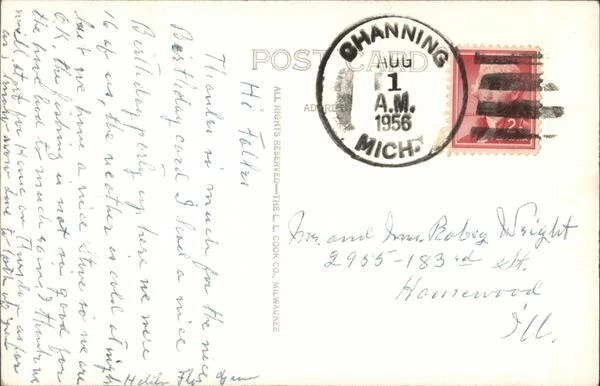 POST CARD
ADDRESS
CHANNING
AUG
1
A.M.
1956
MICH.
2¢
ALL RIGHTS RESERVED—THE L. L. COOK CO., MILWAUKEE
Hi Folks
Thanks so much for the nice
Birthday card I had a nice
Birthday party up here we were
16 of us, the weather is cold at night
but we have a nice stove so we are
O.K. the fishing is not so good for
the have had to much rain I think we
will start for Home on Thursday as for
as
now due to
Mr. and Mrs. Robey Wright
2955-183rd St.
Homewood
Ill.